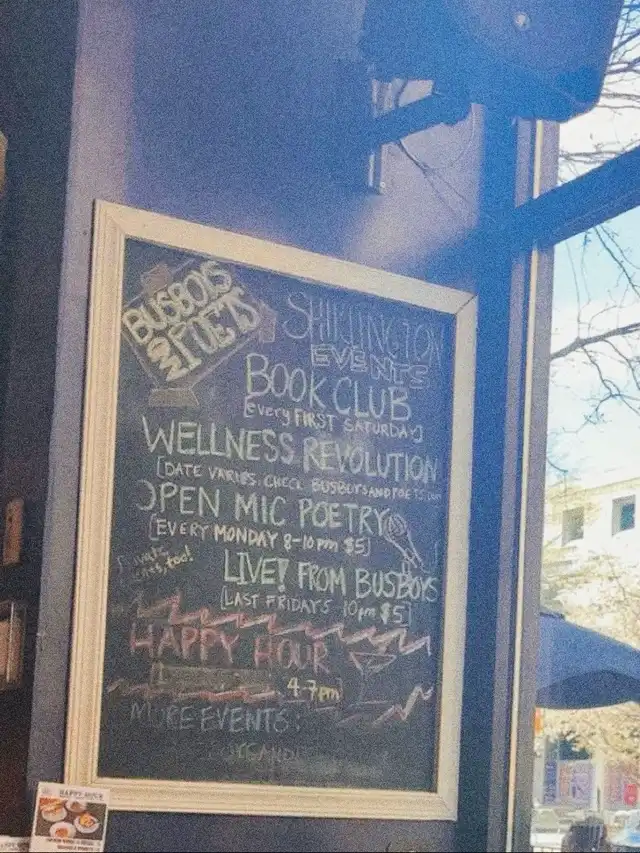 BUSBOYS
AND
POETS
SHIRLINGTON
EVENTS
BOOK CLUB
[EVERY FIRST SATURDAY]
WELLNESS REVOLUTION
[DATE VARIES. CHECK BUSBOYSANDPOETS.COM
OPEN MIC POETRY
[EVERY MONDAY 8-10pm $5]
LIVE! FROM BUSBOYS
[LAST FRIDAYS 10pm $5]
HAPPY HOUR
4-7pm]
MORE EVENTS:
HAPPY HOUR